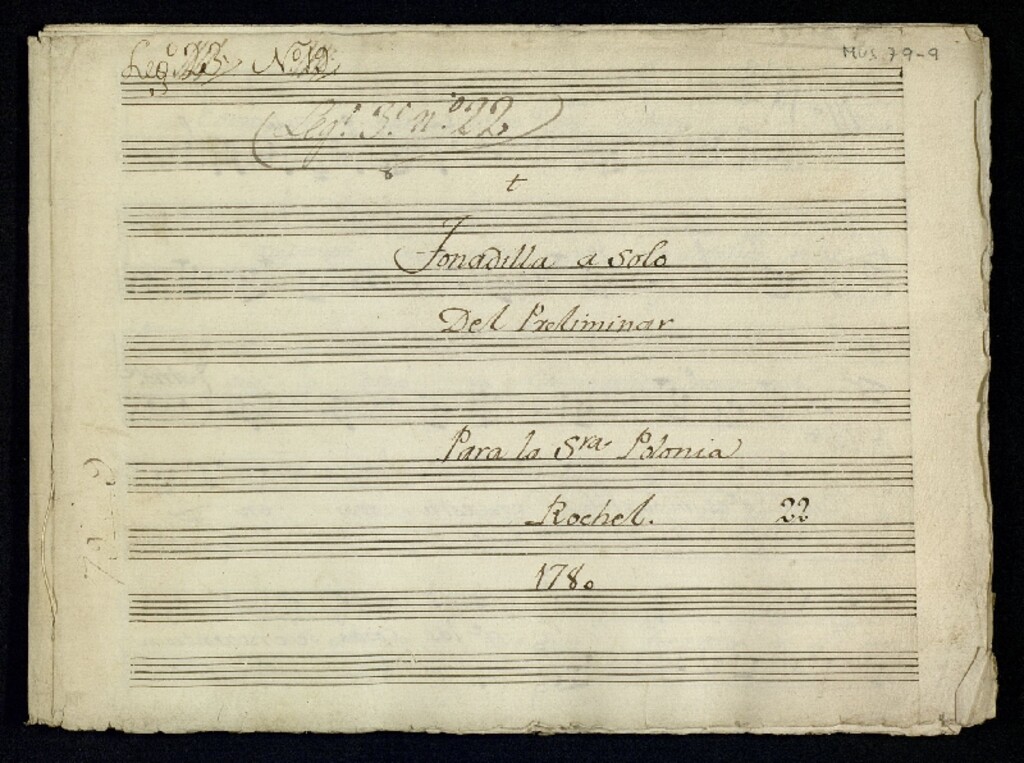 Leg.º 23. N.º 12. Mus 79-9
Leg.º 3.º n.º 22.
t
Tonadilla a Solo
Del Preliminar
Para la Sra. Polonia
Rochel. 22
1780